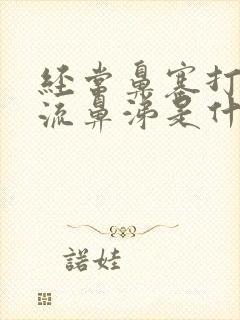 经常鼻塞打
流鼻涕是什
諾娃